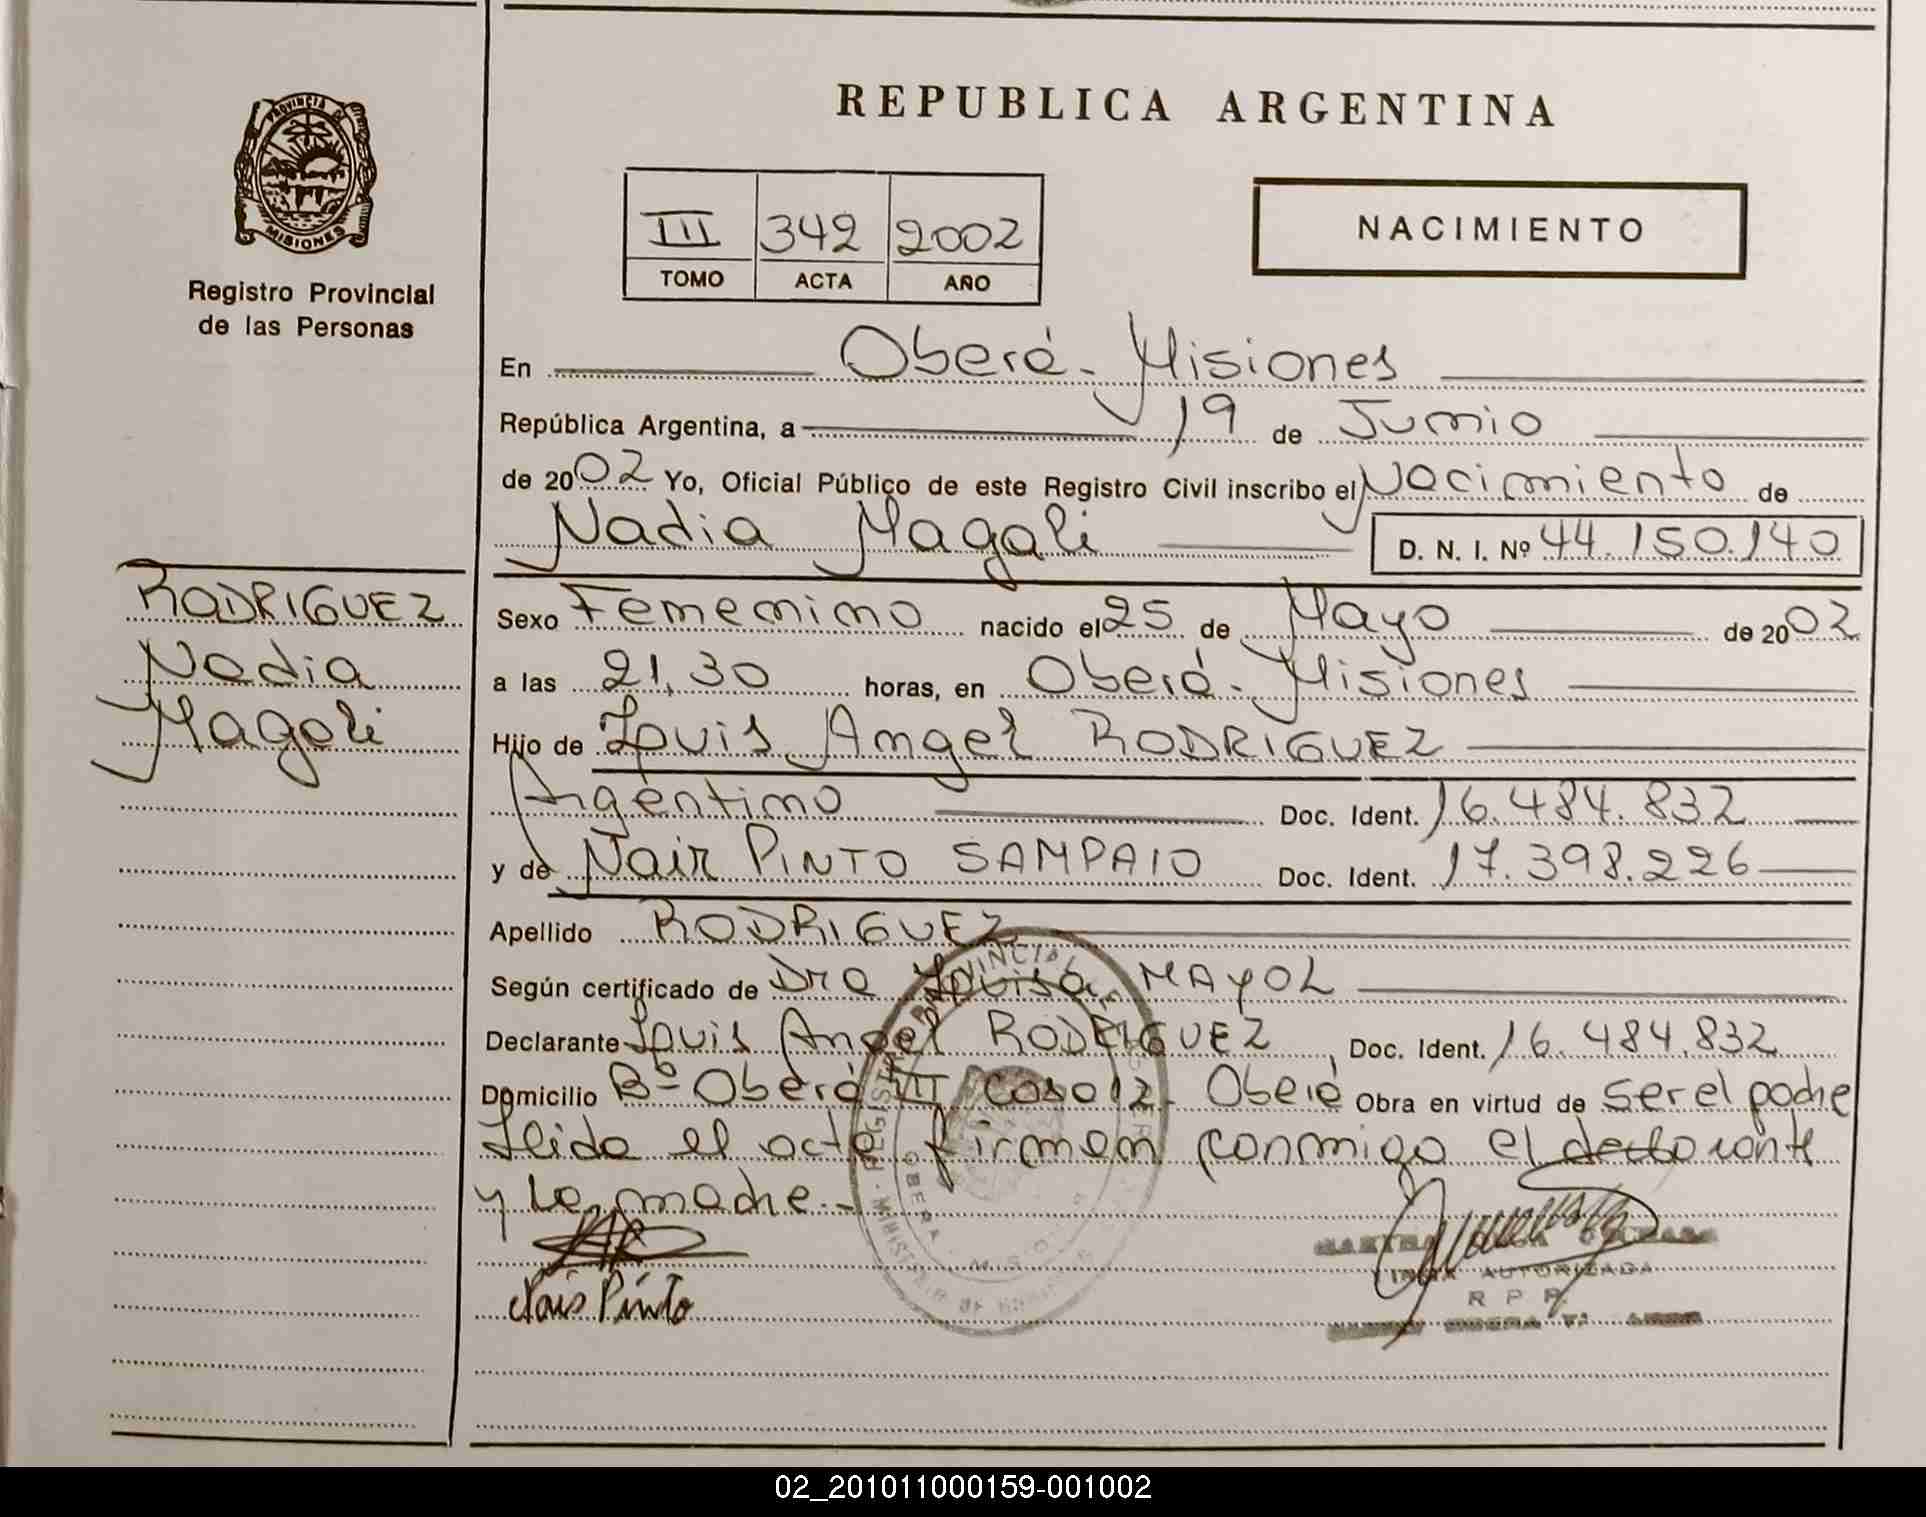 REPUBLICA ARGENTINA
PROVINCIA DE
MISIONES
Registro Provincial
de las Personas
III 342 2002
TOMO ACTA AÑO
NACIMIENTO
En Oberá - Misiones
República Argentina, a 19 de Junio
de 2002 Yo, Oficial Público de este Registro Civil inscribo el Nacimiento de
Nadia Magali D. N. I. Nº 44.150.140
RODRIGUEZ
Nadia
Magali
Sexo Femenino nacido el 25 de Mayo de 2002
a las 21,30 horas, en Oberá - Misiones
Hijo de Luis Angel RODRIGUEZ
Argentino Doc. Ident. 16.484.832
y de Nair PINTO SAMPAIO Doc. Ident. 17.398.226
Apellido RODRIGUEZ
Según certificado de Dra Luisa MAYOL
Declarante Luis Angel RODRIGUEZ, Doc. Ident. 16.484.832
Domicilio Bº Oberá VII casa 12 - Oberá Obra en virtud de ser el padre
Leida el acta firman conmigo el declarante
y la madre.-
Nair Pinto
AUTORIZADA
R P P
02_201011000159-001002